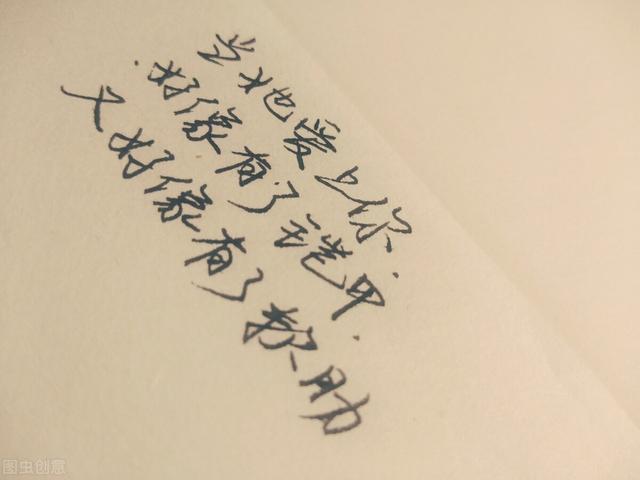 当她爱上你.
好像有了铠甲.
又好像有了软肋
图虫创意